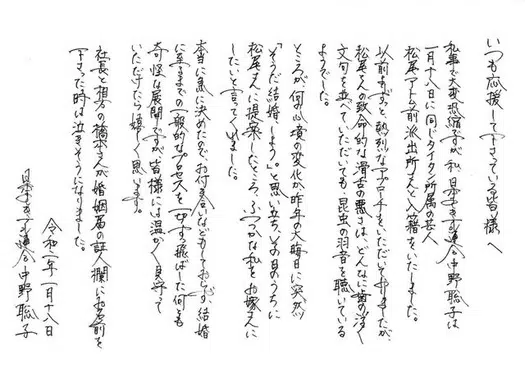 いつも応援して下さっている皆様へ
私事で大変恐縮ですが、私、日本エレキテル連合中野聡子は
一月十八日に同じタイタン所属の芸人
松尾アトム前派出所さんと入籍をいたしました。
以前からずっと熱烈なアプローチをいただいておりましたが、
松尾さんの致命的な滑舌の悪さは、どんなに歯の浮く
文句を並べていただいても、昆虫の羽音を聴いている
ようでした。
ところが何の心境の変化か昨年の大晦日に突然
「そうだ結婚しよう。」と思い立ち、その日のうちに
松尾さんに提案したところ、ふつつかな私をお嫁さんに
したいと言ってくれました。
本当に急に決めたので、お付き合いなどもしておらず、結婚
に至るまでの一般的なプロセスを一切すっ飛ばした何とも
奇怪な展開ですが、皆様には温かく見守って
いただけたら嬉しく思います。
社長と相方の橋本さんが婚姻届の証人欄にお名前を
下さった時は泣きそうになりました。
令和二年一月十八日
日本エレキテル連合 中野聡子